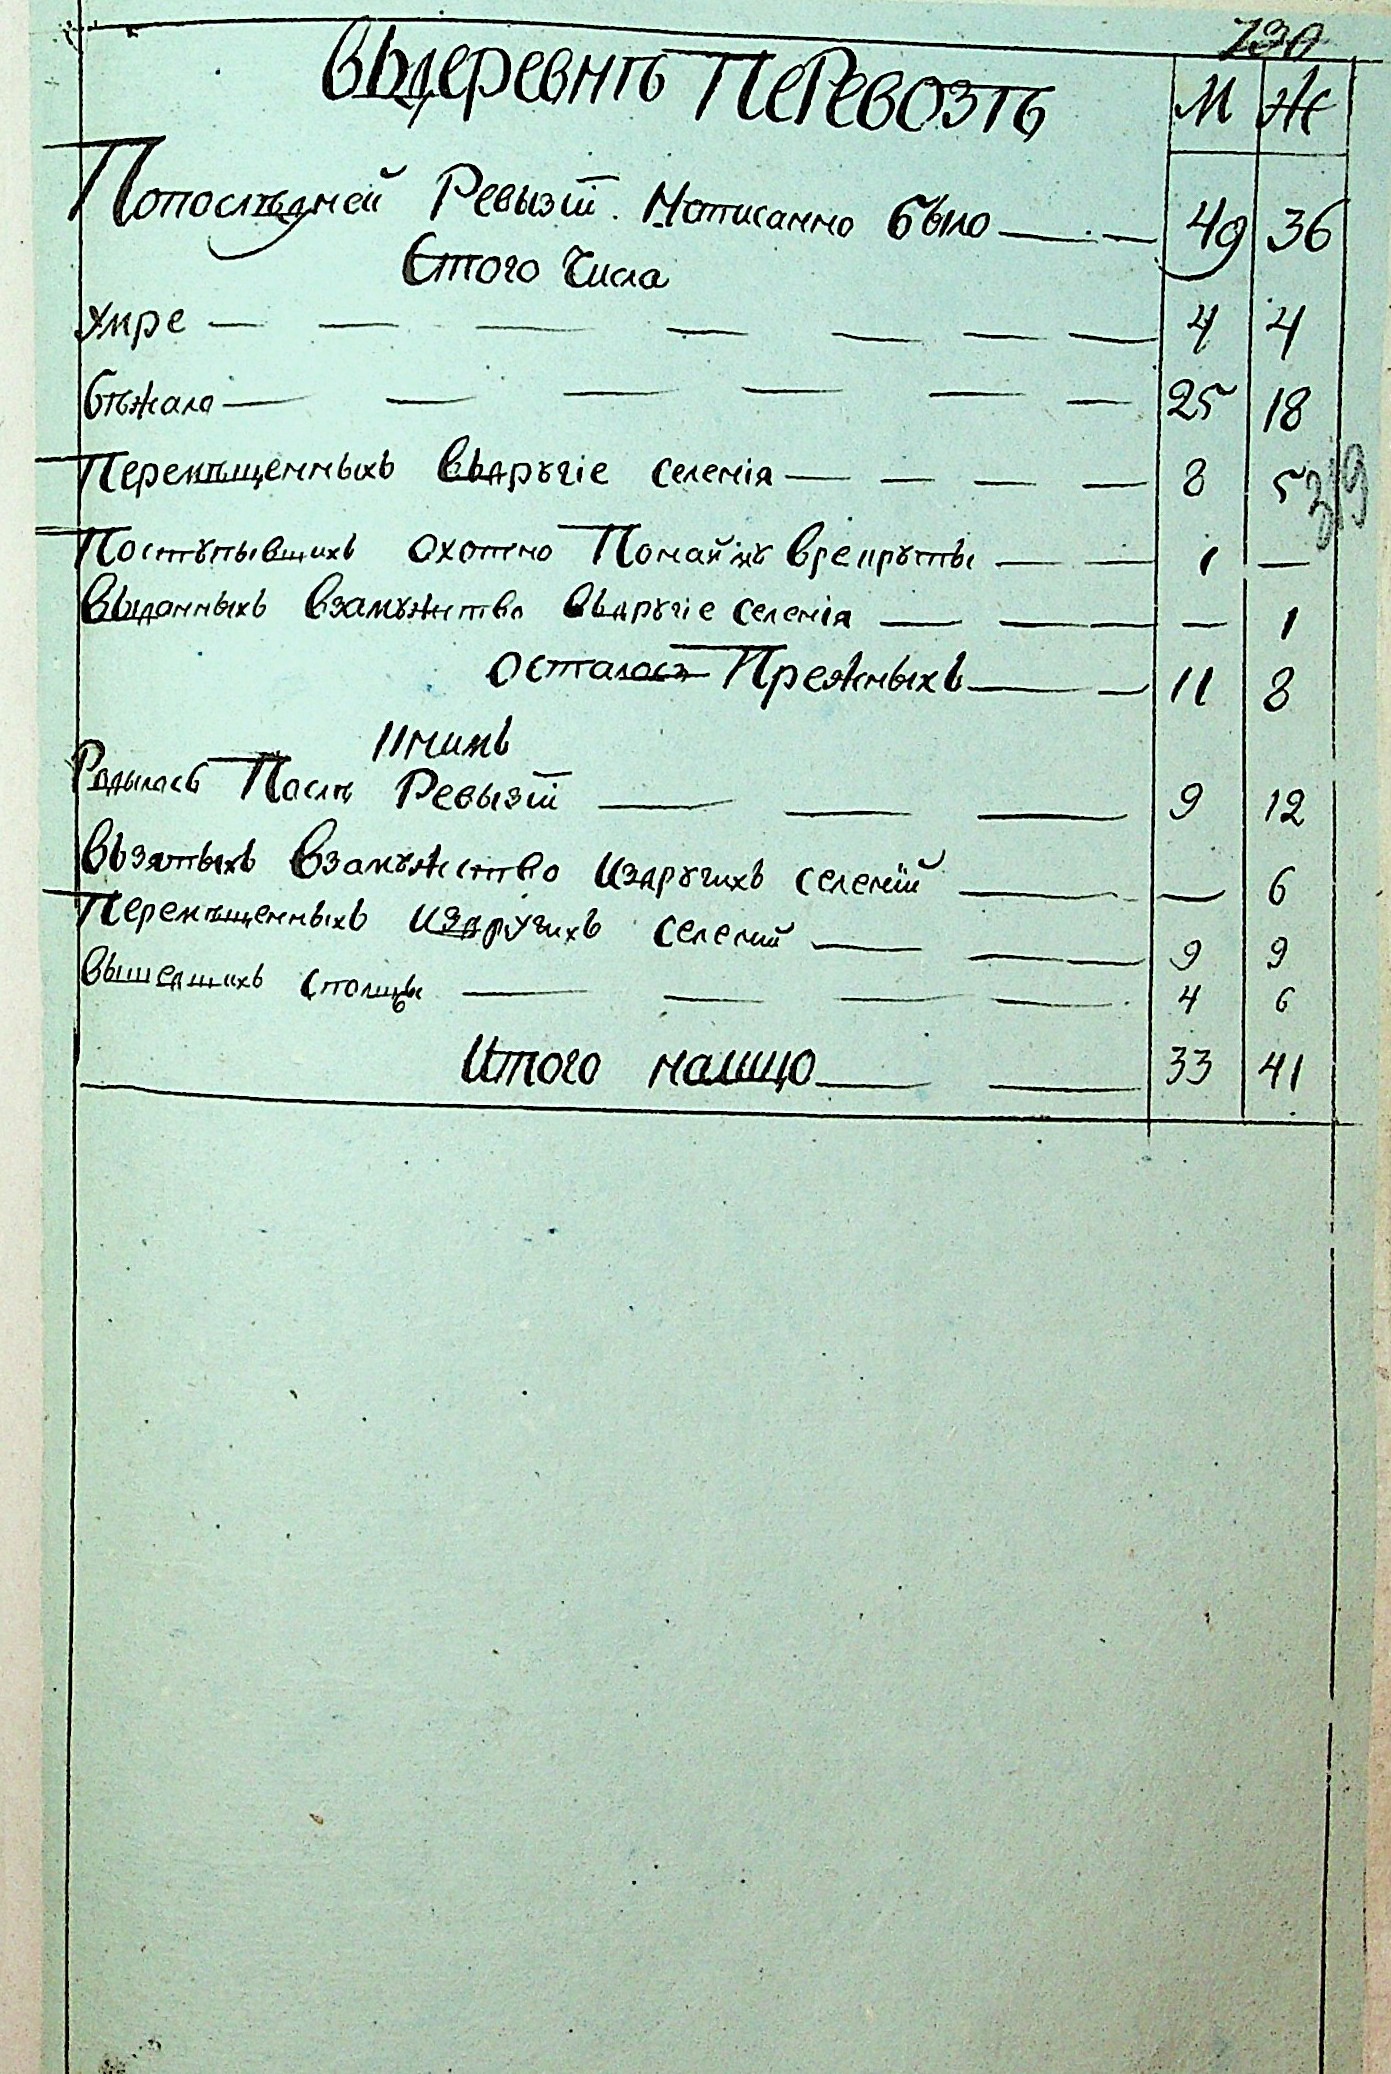 130
Выдеревнѣ Перевозѣ М Ж
Попослѣдней Ревызіи Написанно было 49 36
Стого Числа
Умре 4 4
бѣжало 25 18
Перемѣщенныхъ выдругіе селенія 8 5
319
Поступывшихъ охотно врекруты 1 —
Выданныхъ взамужство выдругіе селенія — 1
осталось Прежныхъ 11 8
Книмъ
Родылось Послѣ Ревызіи 9 12
Вызятыхъ взамужство издругихъ селеній — 6
Перемѣщенныхъ издругихъ селеній 9 9
Вышедшихъ 4 6
Итого налицо 33 41